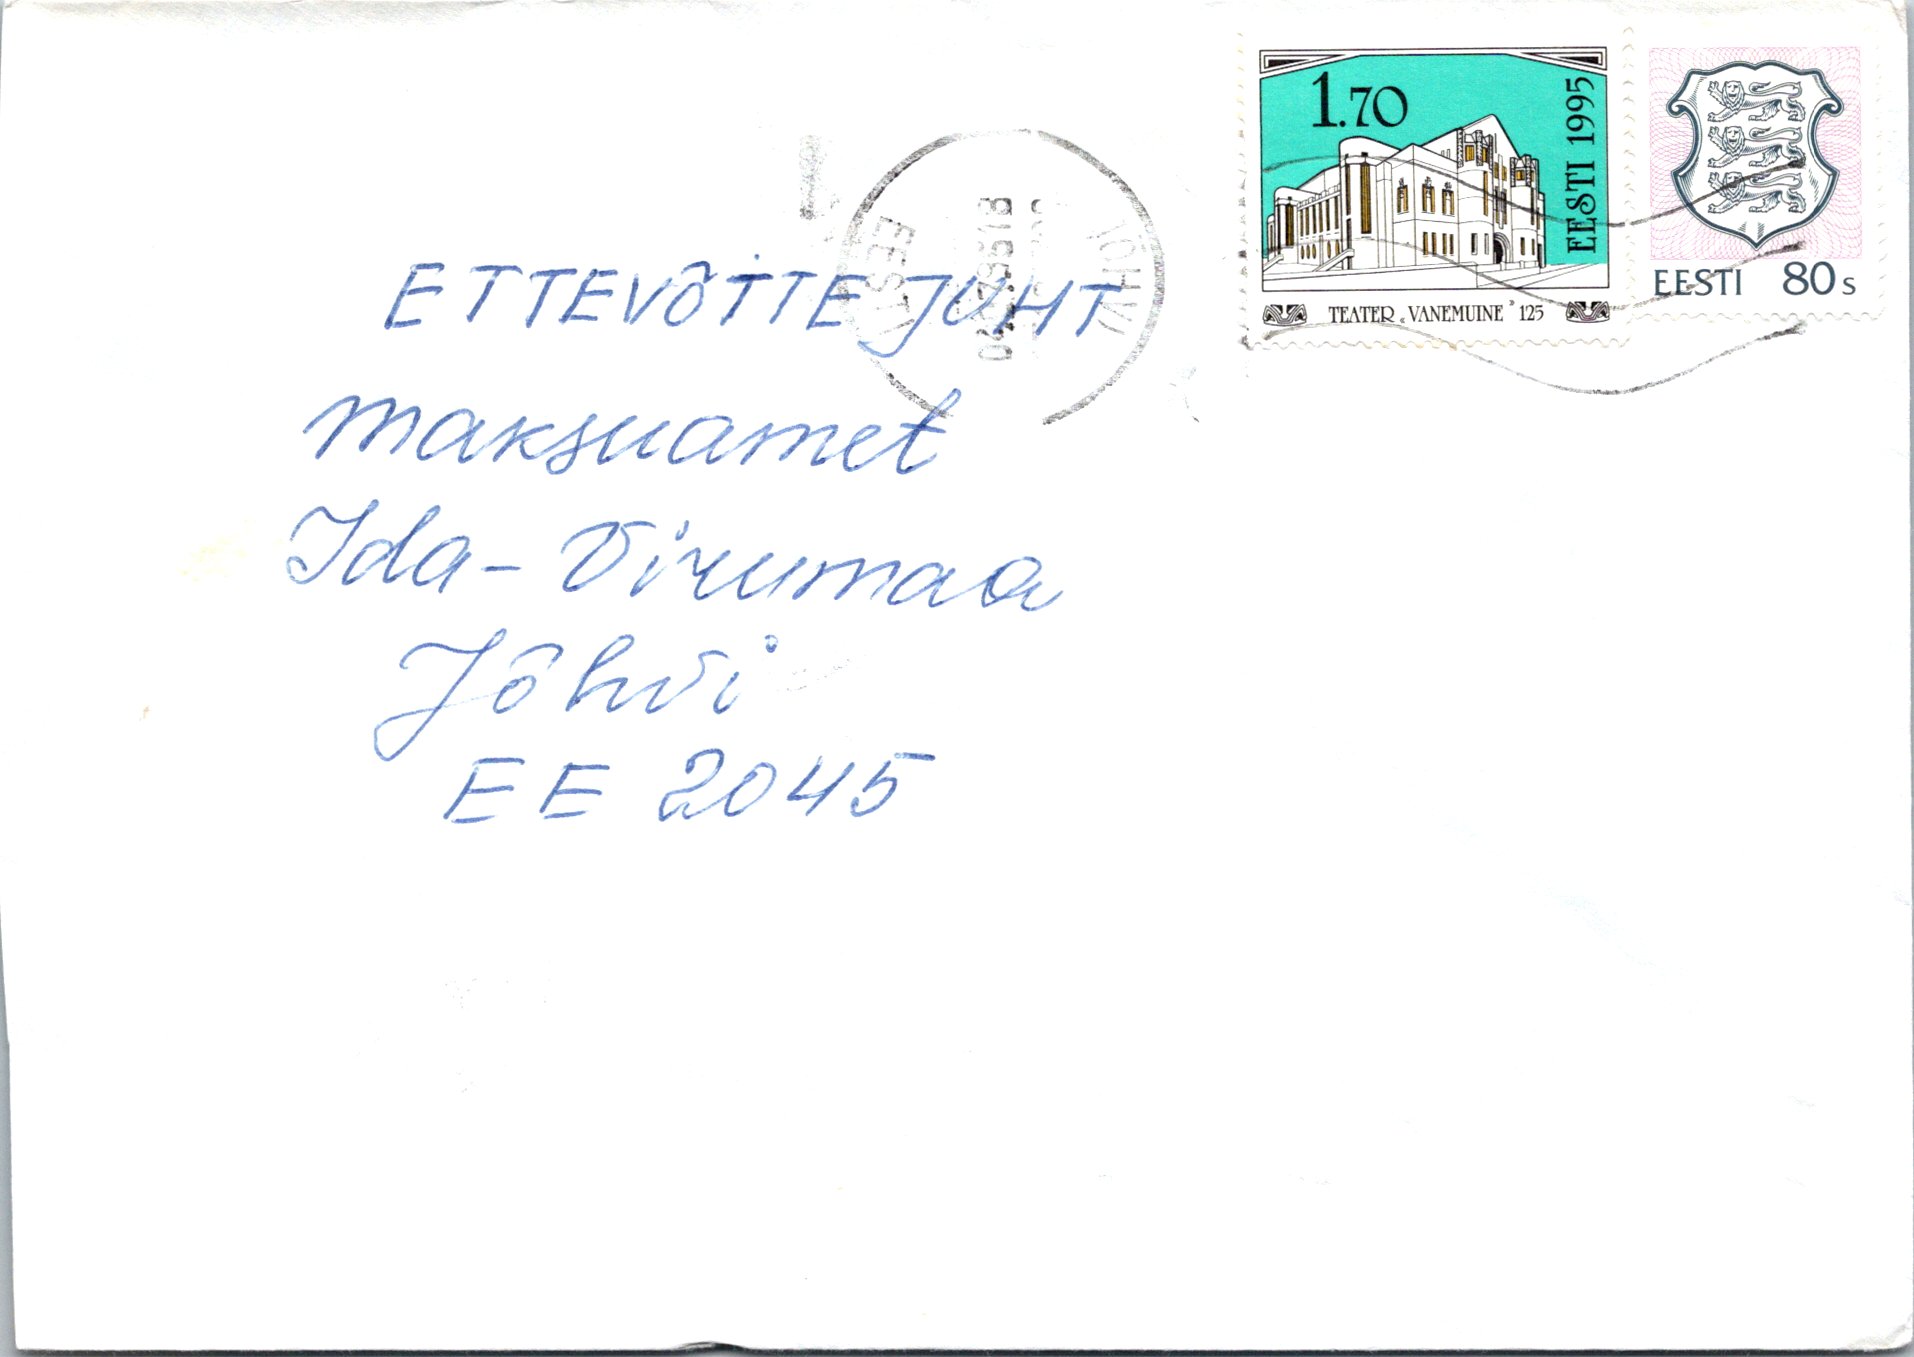 1.70
EESTI 1995
TEATER „VANEMUINE” 125
EESTI 80s
JÕHVI
EESTI
ETTEVÕTTE JUHT
Maksuamet
Ida-Virumaa
Jõhvi
EE 2045